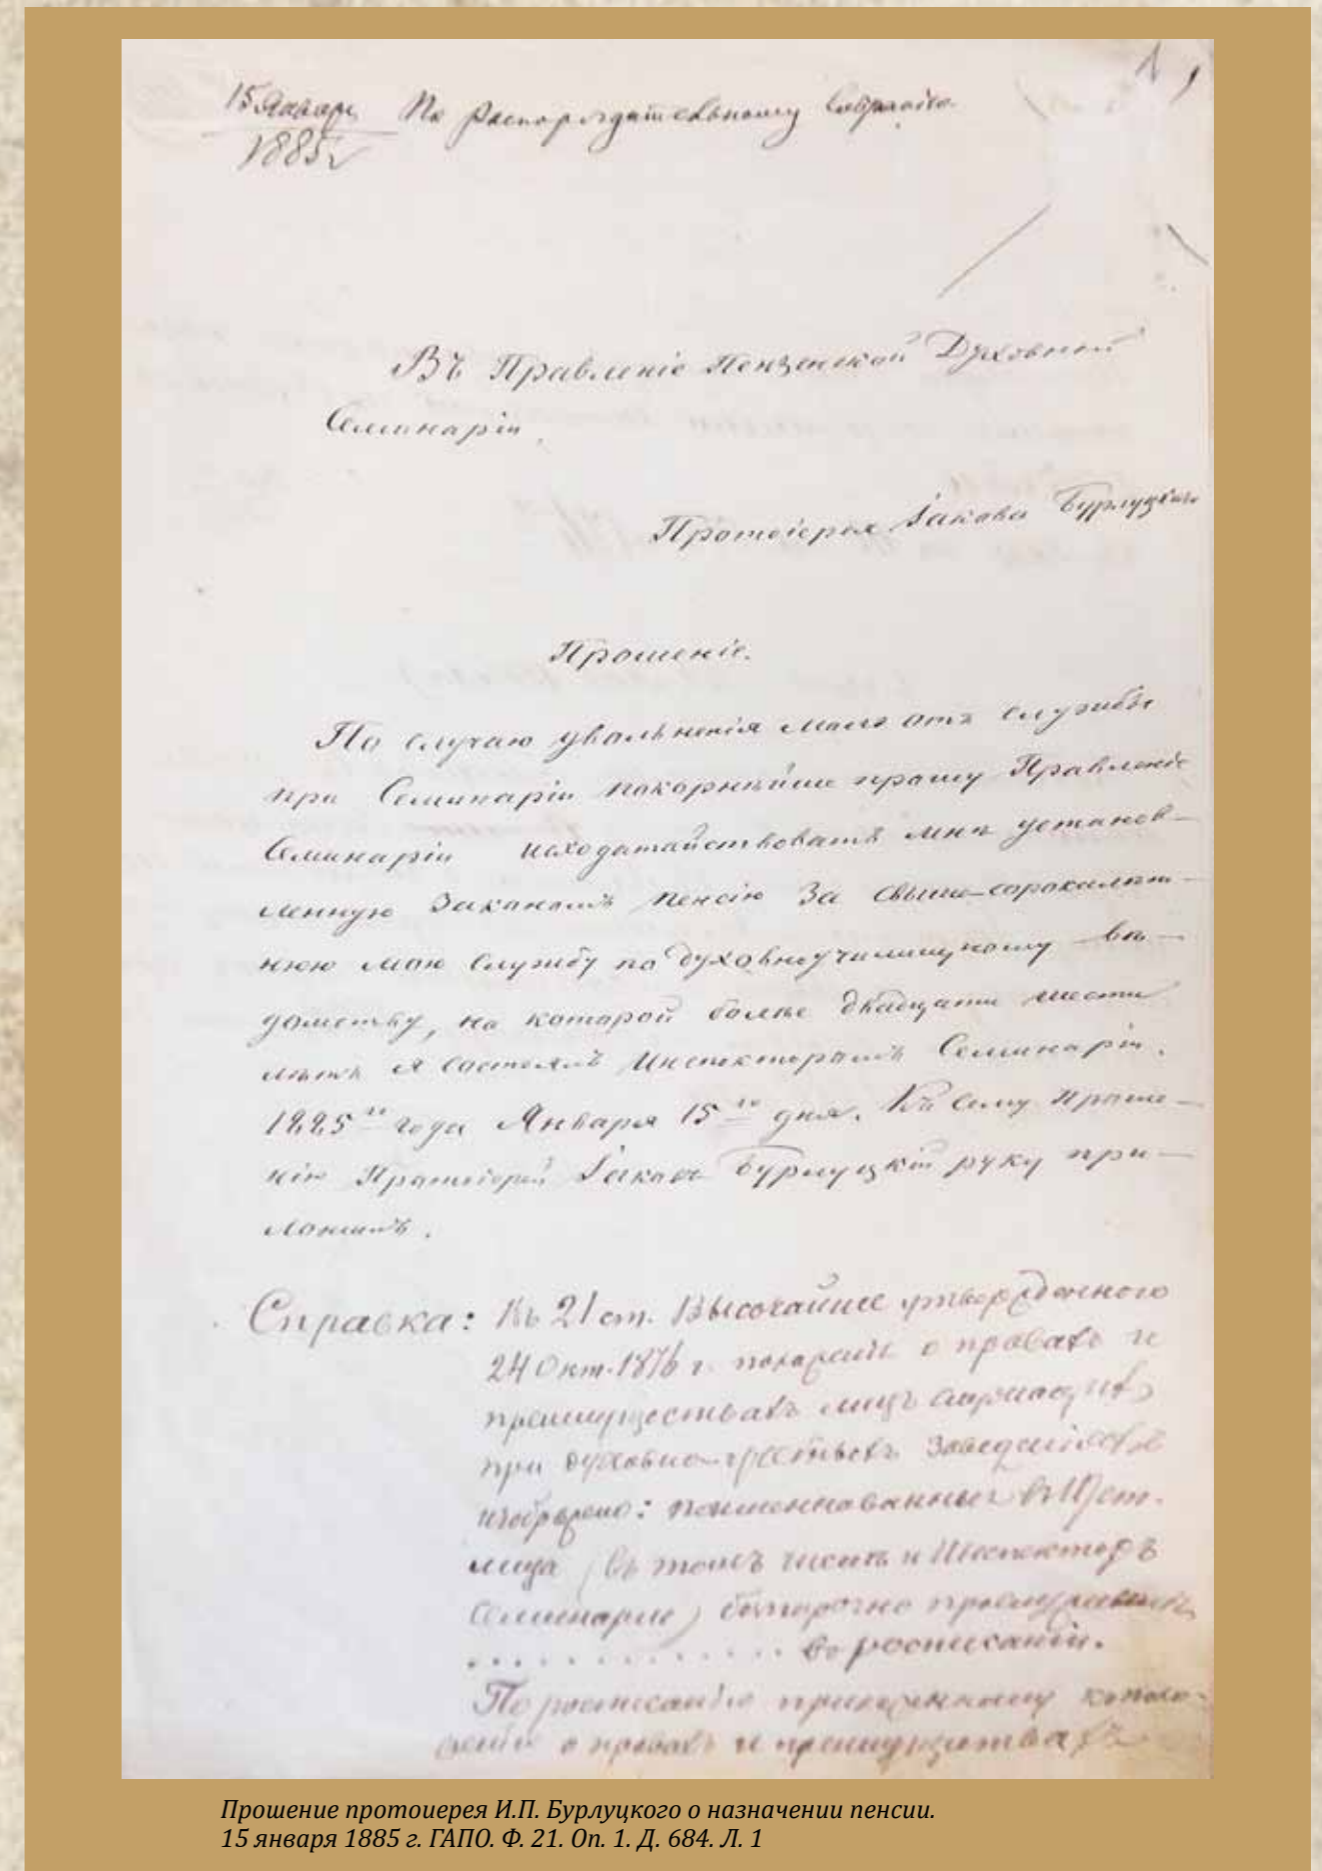 15 Января По распорядительному собранію
1885
1
Въ Правленіе Пензенской Духовной
Семинаріи.
Протоіерея Іакова Бурлуцкаго
Прошеніе.
По случаю увольненія моего отъ службы
при Семинаріи покорнѣйше прошу Правленіе
Семинаріи исходатайствовать мнѣ установ-
ленную закономъ пенсію за свыше-сорокалѣт-
нюю мою службу по духовноучилищному вѣ-
домству, на которой болѣе двадцати шести
лѣтъ я состоялъ Инспекторомъ Семинаріи.
1885го года Января 15го дня. Къ сему проше-
нію Протоіерей Іаковъ Бурлуцкій руку при-
ложилъ.
Справка: Въ 21 ст. Высочайше утвержденного
24 Окт. 1876 г. о правахъ и
преимуществахъ лицъ служащихъ
при духовно-учебныхъ заведеніяхъ
изображено: поименнованныя въ ст.
лица (въ томъ числѣ и Инспекторъ
Семинаріи) безпорочно прослужившіе
. . . . . . . . . . . . . въ росписаніи.
По росписанію приложенному къ поло-
женію о правахъ и преимуществахъ
Прошение протоиерея И.П. Бурлуцкого о назначении пенсии.
15 января 1885 г. ГАПО. Ф. 21. Оп. 1. Д. 684. Л. 1